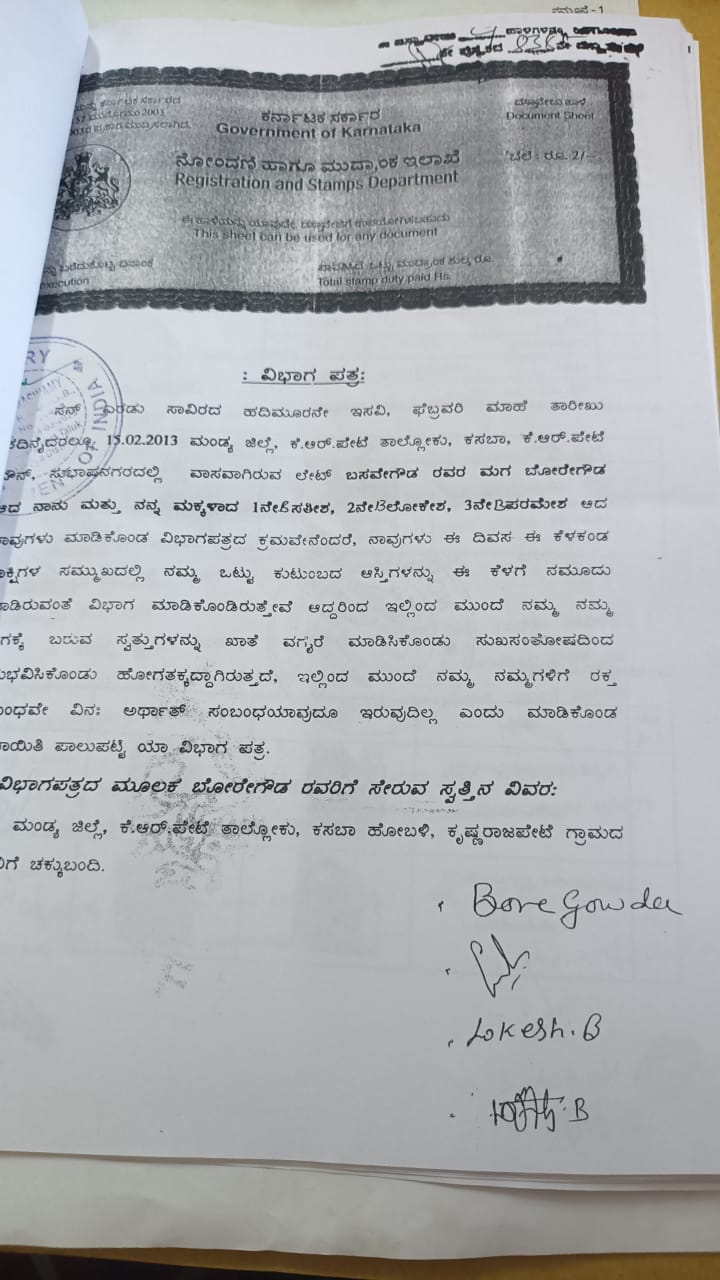 ನಮೂನೆ - 1
ಕರ್ನಾಟಕ ಸರ್ಕಾರದ
2003
ಕರ್ನಾಟಕ ಸರ್ಕಾರ
Government of Karnataka
Document Sheet
ನೋಂದಣಿ ಹಾಗೂ ಮುದ್ರಾಂಕ ಇಲಾಖೆ
ಬೆಲೆ : ರೂ. 2/-
Registration and Stamps Department
This sheet can be used for any document
ಪಾವತಿಸಿದ ಒಟ್ಟು ಮುದ್ರಾಂಕ ಶುಲ್ಕ ರೂ.
execution
Total stamp duty paid Rs.
: ವಿಭಾಗ ಪತ್ರ:
ಸನ್ ಎರಡು ಸಾವಿರದ ಹದಿಮೂರನೇ ಇಸವಿ, ಫೆಬ್ರವರಿ ಮಾಹೆ ತಾರೀಖು
15.02.2013 ಮಂಡ್ಯ ಜಿಲ್ಲೆ, ಕೆ.ಆರ್.ಪೇಟೆ ತಾಲ್ಲೋಕು, ಕಸಬಾ, ಕೆ.ಆರ್.ಪೇಟೆ
ಸುಭಾಷನಗರದಲ್ಲಿ ವಾಸವಾಗಿರುವ ಲೇಟ್ ಬಸವೇಗೌಡ ರವರ ಮಗ ಬೋರೇಗೌಡ
ಆದ ನಾನು ಮತ್ತು ನನ್ನ ಮಕ್ಕಳಾದ 1ನೇ ಸತೀಶ, 2ನೇ ಲೋಕೇಶ, 3ನೇ ಪರಮೇಶ ಆದ
ನಾವುಗಳು ಮಾಡಿಕೊಂಡ ವಿಭಾಗಪತ್ರದ ಕ್ರಮವೇನೆಂದರೆ, ನಾವುಗಳು ಈ ದಿವಸ ಈ ಕೆಳಕಂಡ
ಸಮ್ಮುಖದಲ್ಲಿ ನಮ್ಮ ಒಟ್ಟು ಕುಟುಂಬದ ಆಸ್ತಿಗಳನ್ನು ಈ ಕೆಳಗೆ ನಮೂದು
ಮಾಡಿರುವಂತೆ ವಿಭಾಗ ಮಾಡಿಕೊಂಡಿರುತ್ತೇವೆ ಆದ್ದರಿಂದ ಇಲ್ಲಿಂದ ಮುಂದೆ ನಮ್ಮ ನಮ್ಮ
ಬರುವ ಸ್ವತ್ತುಗಳನ್ನು ಖಾತೆ ವಗೈರೆ ಮಾಡಿಸಿಕೊಂಡು ಸುಖಸಂತೋಷದಿಂದ
ಹೋಗತಕ್ಕದ್ದಾಗಿರುತ್ತದೆ, ಇಲ್ಲಿಂದ ಮುಂದೆ ನಮ್ಮ ನಮ್ಮಗಳಿಗೆ ರಕ್ತ
ವಿನಃ ಅರ್ಥಾತ್ ಸಂಬಂಧಯಾವುದೂ ಇರುವುದಿಲ್ಲ ಎಂದು ಮಾಡಿಕೊಂಡ
ಪಾಲುಪಟ್ಟಿ ಯಾ ವಿಭಾಗ ಪತ್ರ.
ವಿಭಾಗಪತ್ರದ ಮೂಲಕ ಬೋರೇಗೌಡ ರವರಿಗೆ ಸೇರುವ ಸ್ವತ್ತಿನ ವಿವರ:
ಮಂಡ್ಯ ಜಿಲ್ಲೆ, ಕೆ.ಆರ್.ಪೇಟೆ ತಾಲ್ಲೋಕು, ಕಸಬಾ ಹೋಬಳಿ, ಕೃಷ್ಣರಾಜಪೇಟೆ ಗ್ರಾಮದ
ಚಕ್ಕುಬಂದಿ.
Bore Gowda
Lokesh. B